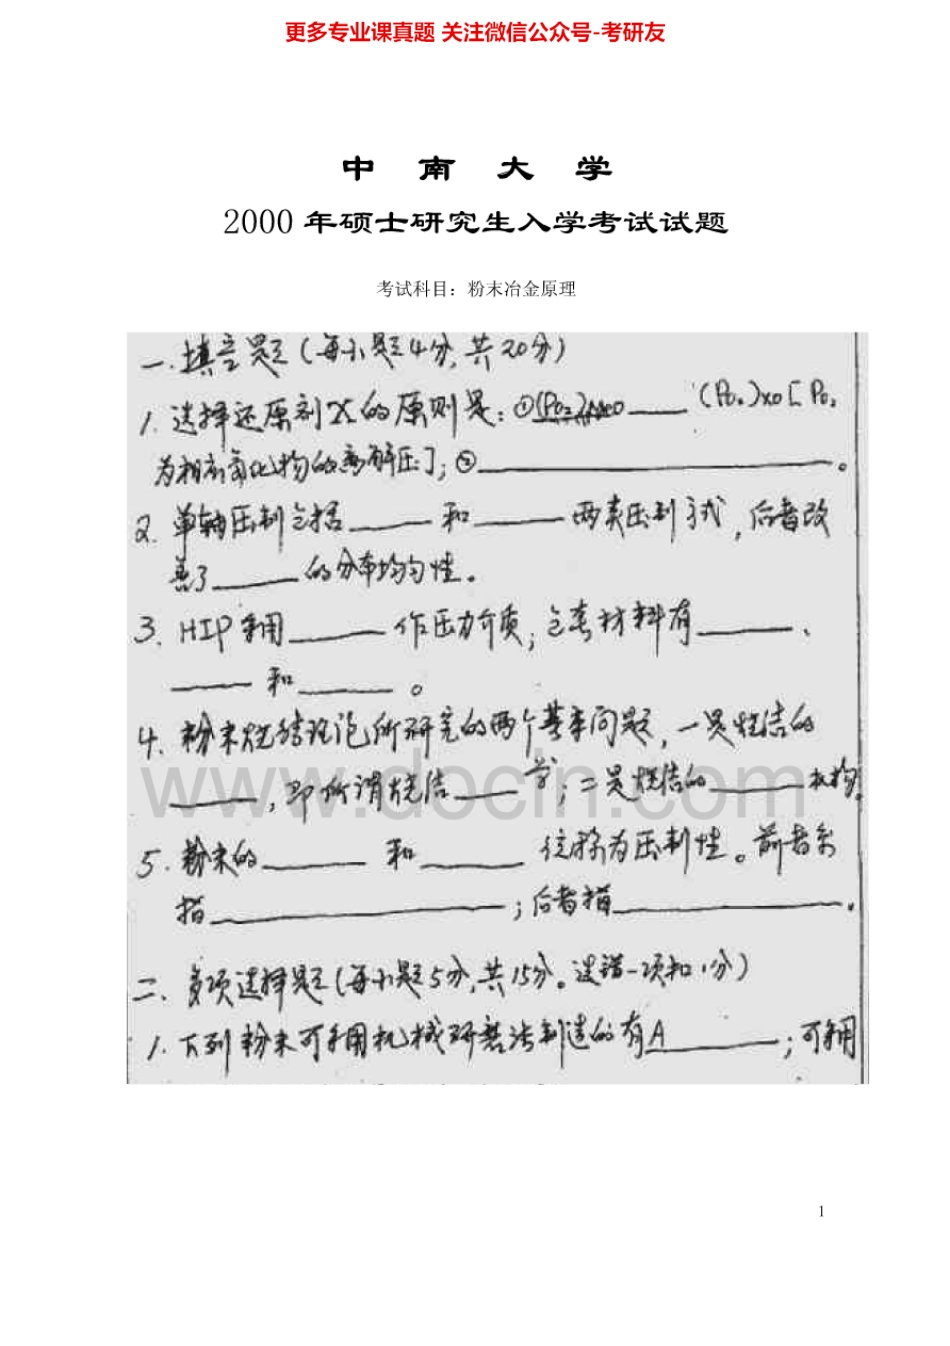 更多专业课真题 关注微信公众号-考研友
中 南 大 学
2000 年硕士研究生入学考试试题
考试科目：粉末冶金原理
一.填空题（每小题4分,共20分）
1.选择还原剂X的原则是：①(Po₂)MeO____(Po₂)xo[Po₂
为相应氧化物的离解压]；②____。
2.单轴压制包括____和____两类压制方式，后者改
善了____的分布均匀性。
3.HIP采用____作压力介质；包套材料有____、
____和____。
4.粉末烧结理论所研究的两个基本问题，一是烧结的
____，即所谓烧结____学；二是烧结的____机构。
www.docin.com
5.粉末的____和____统称为压制性。前者系
指____；后者指____.
二、多项选择题（每小题5分,共15分。选错一项扣1分）
1.下列粉末可采用机械研磨法制造的有A____；可采用
1